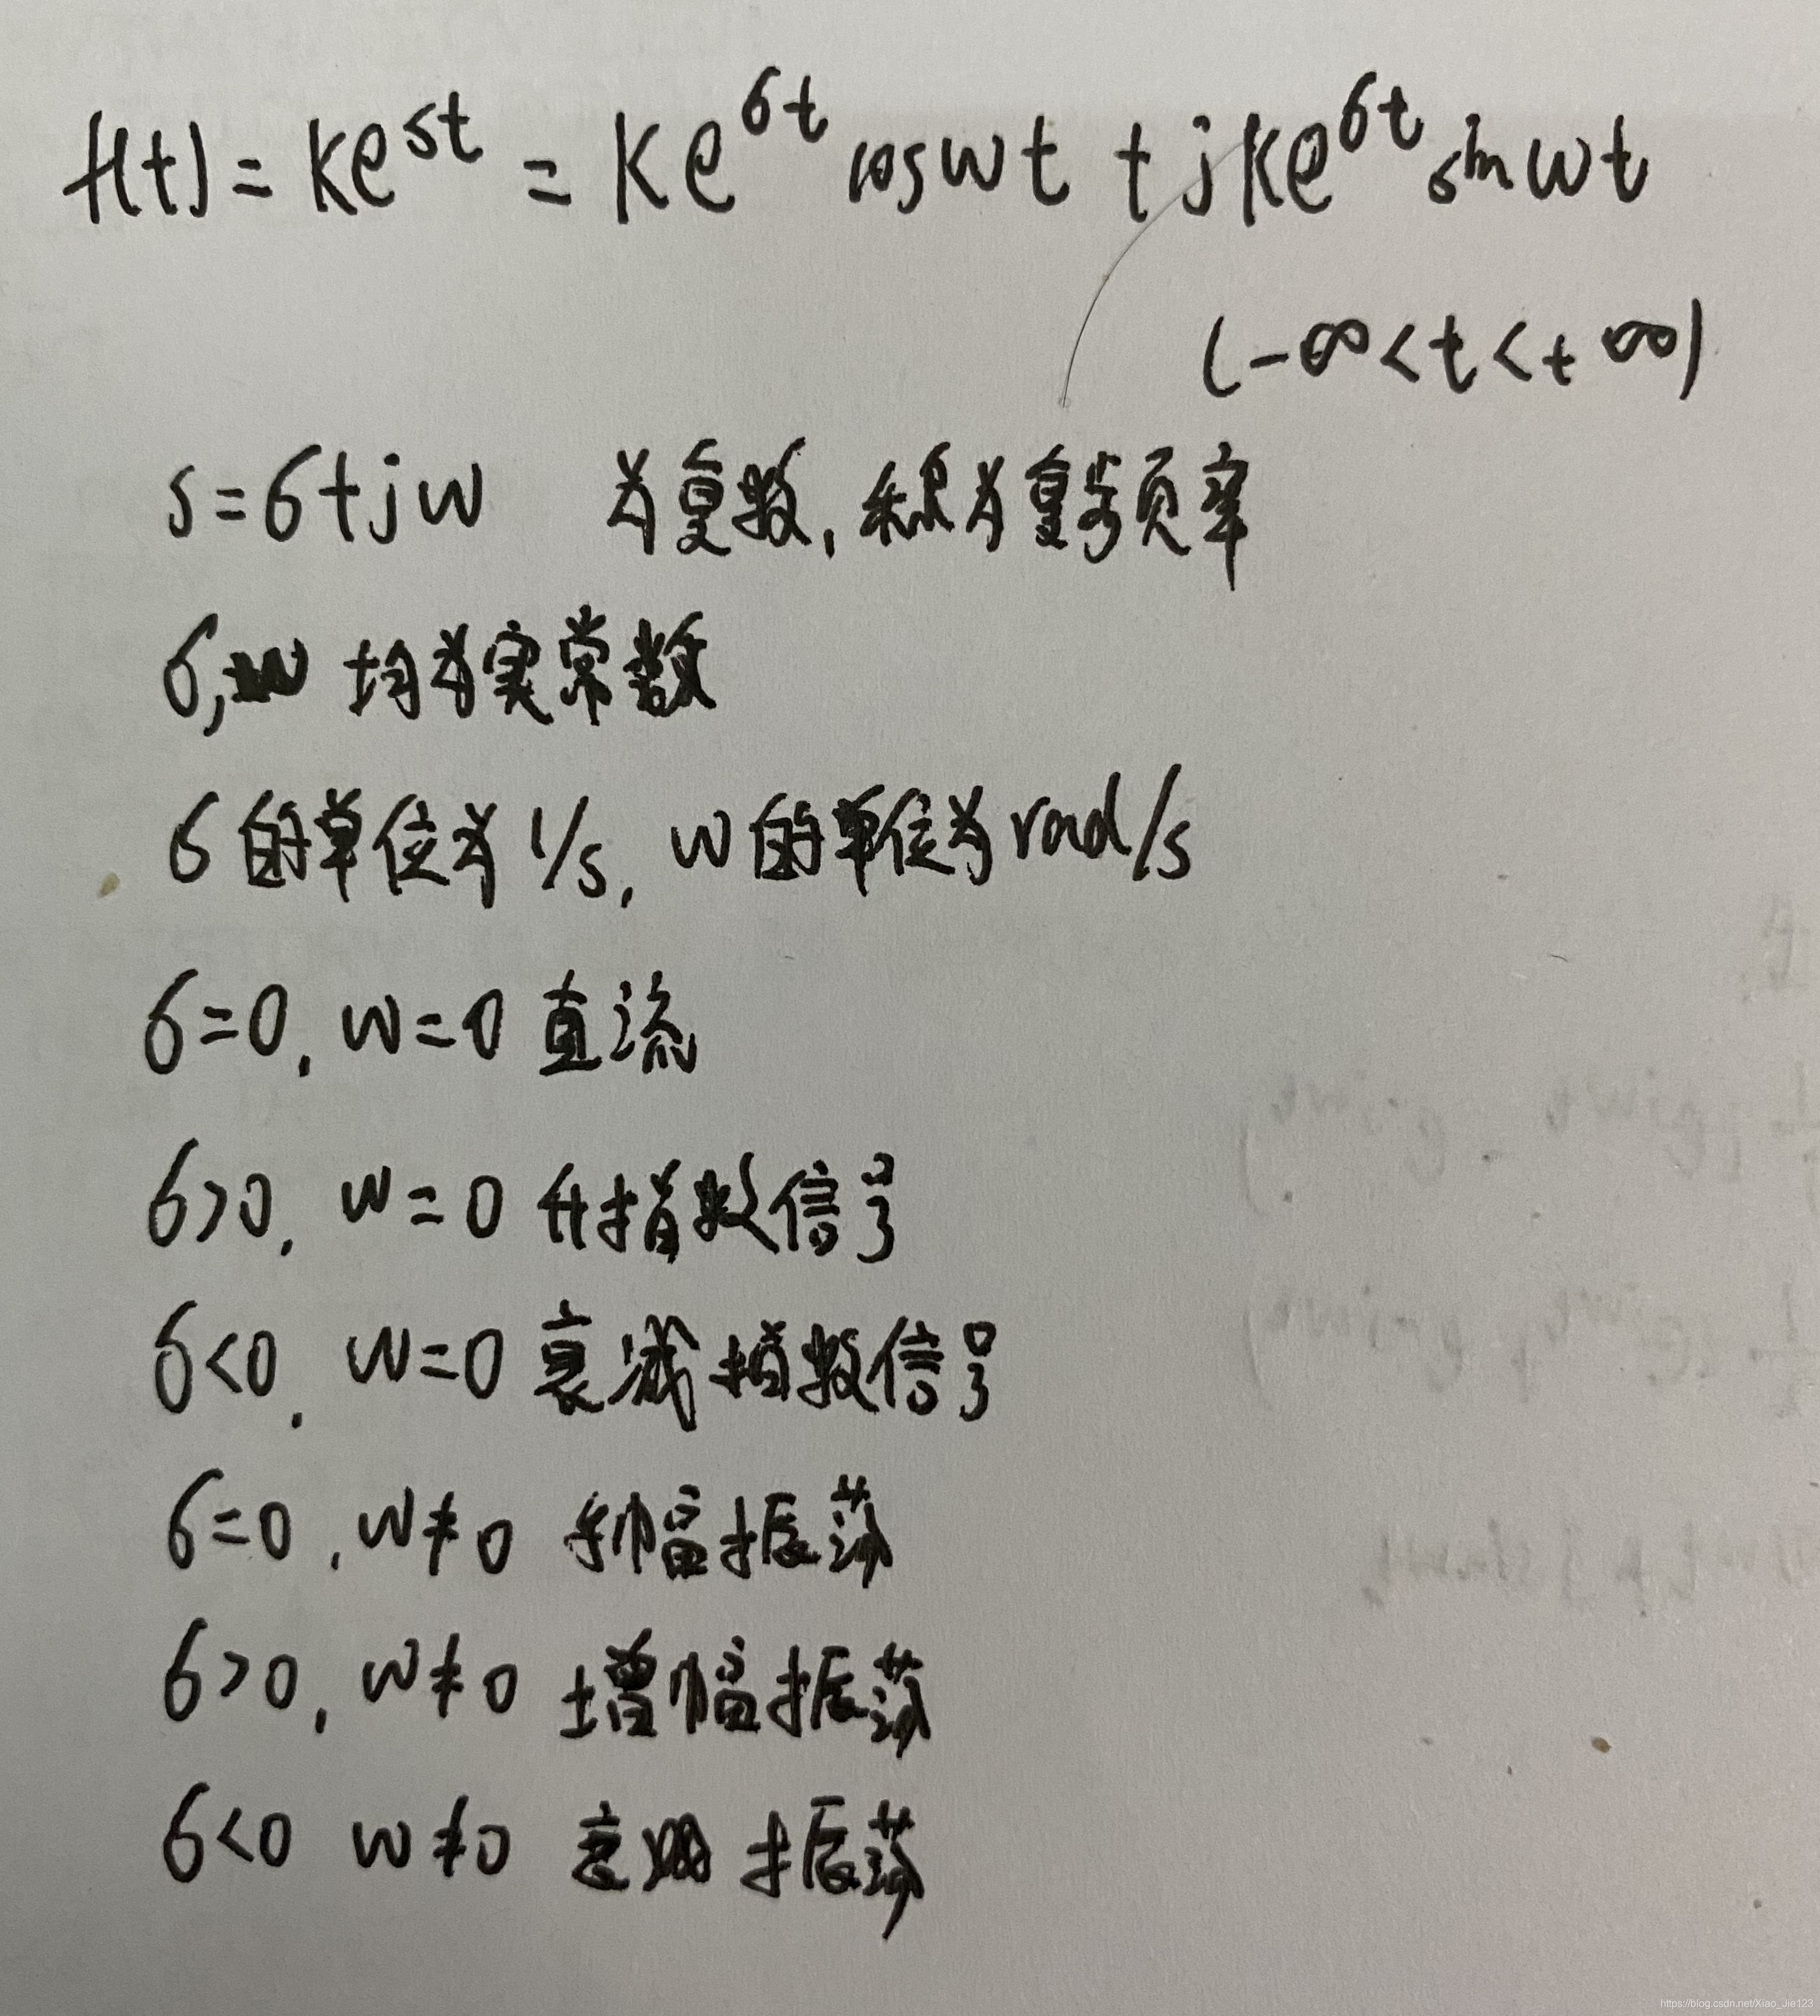 f(t) = Ke^{st} = Ke^{σt} cos wt + jKe^{σt} sin wt
(-∞ < t < +∞)
s = σ + jw 为复数, 称为复频率
σ, w 均为实常数
σ 的单位为 1/s, w 的单位为 rad/s
σ=0, w=0 直流
σ>0, w=0 升指数信号
σ<0, w=0 衰减指数信号
σ=0, w≠0 等幅振荡
σ>0, w≠0 增幅振荡
σ<0 w≠0 衰减振荡
https://blog.csdn.net/Xiao_Jie123